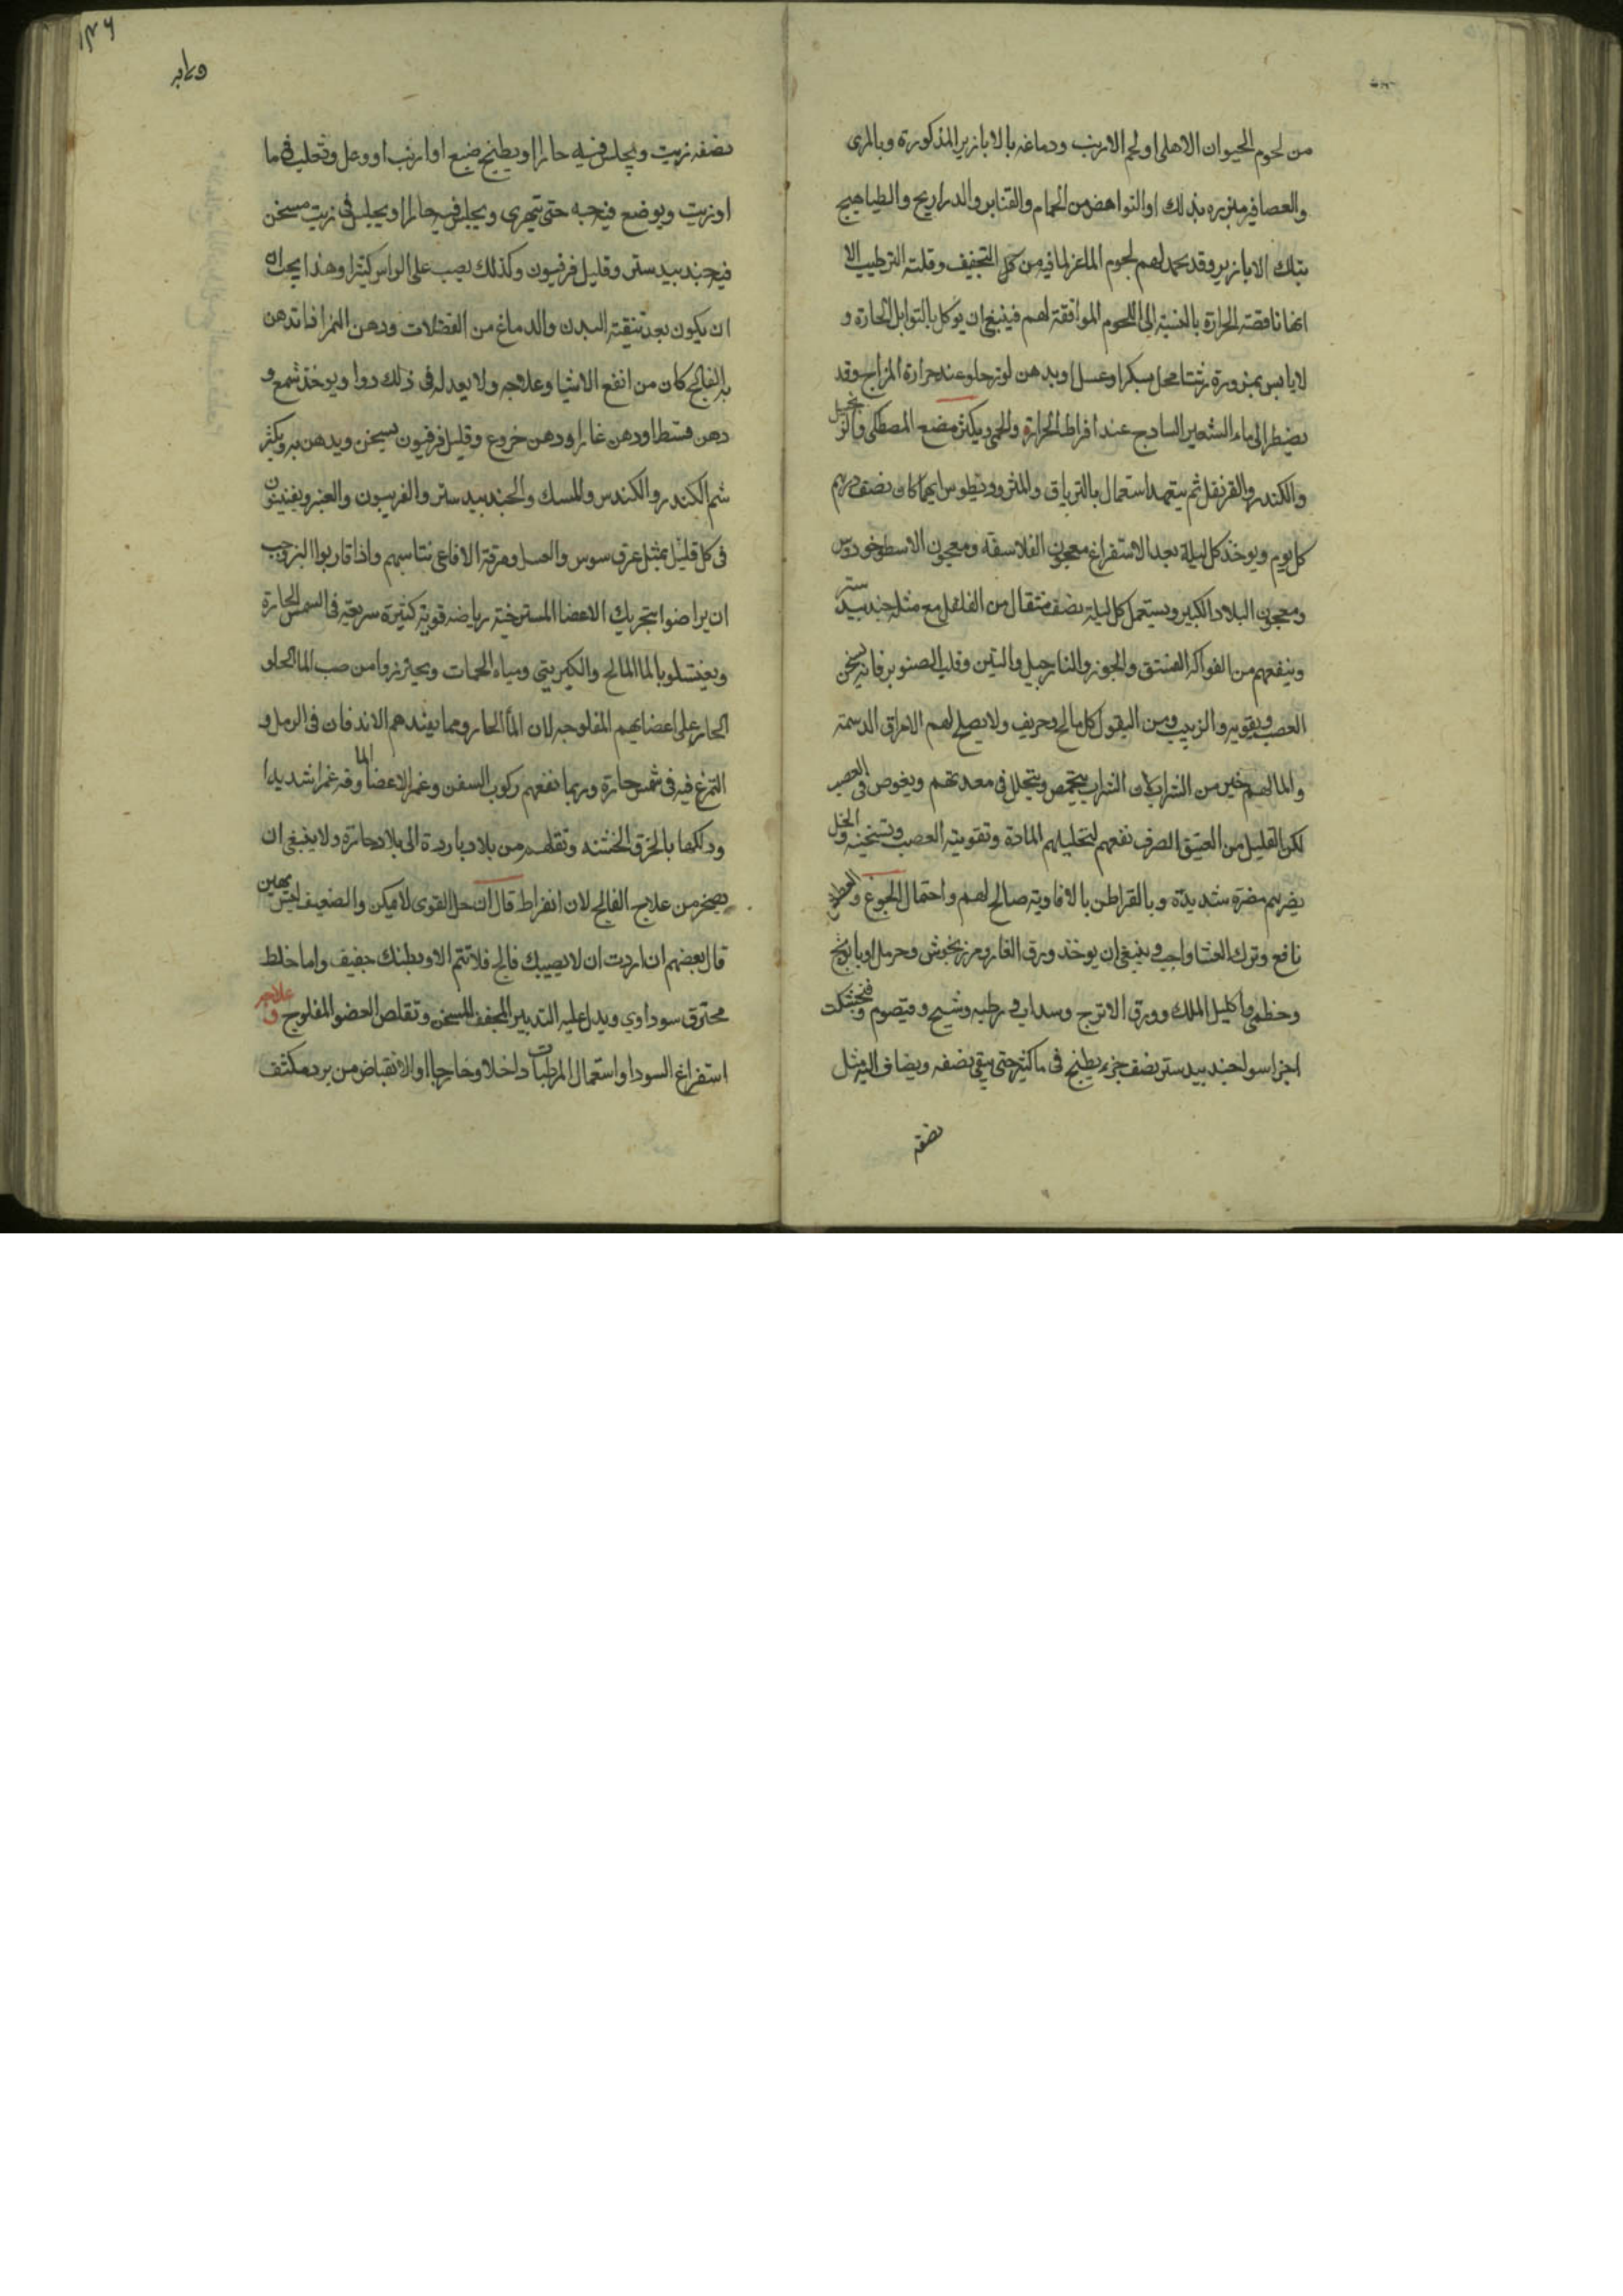 من لحوم الحيوان الاهلى او لحم الارنب ودماغه بالابازير المذكورة وبالمرى
والعصافير مبزره بذلك او النواهض من الحمام والقنابر والدراريج والطياهيج
بتلك الابازير وقد يحمد لهم لحوم الماعز لما فيه من كل التجفيف وقلته الترطيب الا
انها ناقصته الحرارة بالنسبته الى اللحوم الموافقته لهم فينبغى ان يوكل بالتوابل الحارة و
لاباس بمزورة محل بسكر او عسل او بدهن لوز حلو عند حرارة المزاج وقد
يضطر الى ماء الشعير السادج عند افراط الحرارة والحمى ويكثر مضع المصطكى والزنجبيل
والكندر والقرنفل ثم يتعهد استعمال بالترياق والمثروديطوس ايهما كان نصف درهم
كل يوم ويوخذ كل ليلة بعد الاستفراغ معجون الفلاسفه ومعجون الاسطوخودوس
ومعجون البلادر الكبير ويستعمل كل ليلة نصف مثقال من الفلفل مع مثله جندبيدستر
وينفعهم من الفواكه الفستق والجوز والنارجيل والتين وقلب الصنوبر فانه يسخن
العصب ويقويه والزبيب ومن البقول كل مالح وحريف ولا يصلح لهم الامراق الدسمة
والما لهم خير من الشراب لان الشراب يتحمض ويتحلل فى معدتهم ويغوص فى العصب
لكن القليل من العتيق الصرف نفعهم لتحليلهم المادة وتقويته العصب وتسخينه والخل
يضرهم مضرة شديدة وبالقراطن بالافاويه صالح لهم واحتمال الجوع والعطش
نافع وترك العشا واجب وينبغى ان يوخذ ورق الغار ومرزنجوش وحرمل وبابونج
وخطمى واكليل الملك وورق الاترج وسداب رطبه وشيح وقيصوم وفنجنكشت
اجزا سوا جندبيدستر نصف جزء يطبخ فى ماكثير حتى يبقى نصفه ويضاف اليه مثل
نصفه
نصفه زيت ويجلس فيه حارا او يطبخ ضبع او ارنب او وعل وثعلب فى ما
او زيت ويوضع فيه حبه حتى يتهرى ويجلس فيه حارا او يجلس فى زيت مسخن
فيه جندبيدستر وقليل فرفيون وكذلك يصب على الراس كثيرا وهذا يجب
ان يكون بعد تنقيته البدن والدماغ من الفضلات ودهن اذا تدهن
به الفالج كان من انفع الاشيا وعلاجه ولا يعدله فى ذلك دوا ويوخذ شمع و
دهن قسط او دهن غار او دهن خروع وقليل فرفيون يسخن ويدهن به ويكثر
شم الكندر والكندس والمسك والجندبيدستر والفربيون والعنبر
فى كل قليل بمثل عرق سوس والعسل ومرقة الافاعى تناسبهم واذا قاربوا البرو جب
ان يراضوا بتحريك الاعضا المسترخيته رياضه قويته كثيرة سريعته فى الشمس الحارة
ويغتسلو بالما المالح والكبريتى ومياه الحمات ويحترزوا من صب الما الحلو
الحار على اعضايهم المفلوجه لان الما الحار ومما يفيدهم الاندفان فى الرمل و
التمرغ فيه فى شمس حارة وربما نفعهم ركوب السفن وغمر الاعضا الما وقه غمرا شديدا
ودلكها بالخرق الخشنه ونقلهم من بلاد باردة الى بلاد حارة ولا ينبغى ان
يضجر من علاج الفالج لان ابقراط قال ان حل القوى لا يمكن والضعيف ليس يهين
قال بعضهم ان اردت ان لا يصيبك فالج فلا تنم الا وبطنك خفيف واما خلط
محترق سوداوي ويدل عليه التدبير المجفف المسخن وتقلص العضو المفلوج وعلاجه
استفراغ السودا واستعمال المرطبات داخلا وخارجا او الانقباض من برد مكثف